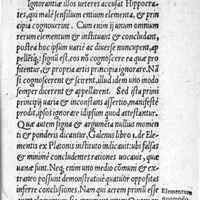 Ignorantia illos veteres accusat Hippocra-
tes, qui malè sensilium entium elementa, & prin
cipia cognouerint. Cum enim ij unum omnium
rerum elementum & instituant & concludant,
postea hoc ipsum variè ac diuersè nuncupent, ap
pellẽtq́; signũ est, eos nõ cognoscere ea quæ pro
fitentur, & propria artis principia ignorare. Nã
si cognoscerent & scirent, illud idem uno modo
semper dicerent & appellarent. Sed ista primi
principij varia & inconstans assertio, manifestè
prodit, ipsos ignorare idipsum quod attestantur.
Quæ autem signa & argumẽta nullius momẽ
ti & ponderis dicantur, Galenus libro 1. de Ele
mentis ex Platonis instituto indicauit: ubi falsas
& minimè concludentes rationes uocauit, quæ
uanæ sint. Neq; enim uno medio cõmuni & ex-
traneo possunt demonstratiuè quatuor oppositas
inferre conclusiones. Nam qui aerem primũ esse
Elementum
quomodo